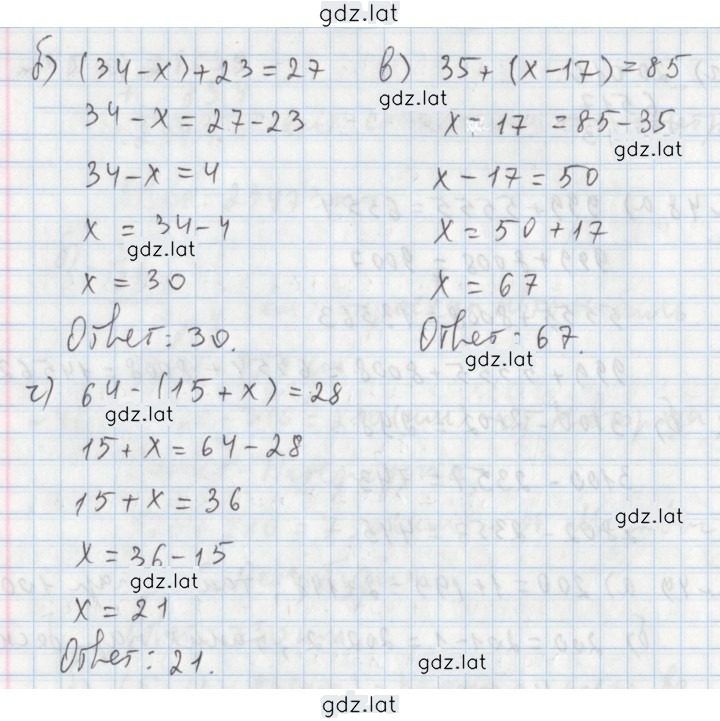 gdz.lat
б) (34-x)+23=27
34-x=27-23
34-x=4
x=34-4
gdz.lat
x=30
Ответ: 30.
в) 35+(x-17)=85
gdz.lat
x-17=85-35
gdz.lat
x-17=50
x=50+17
x=67
Ответ: 67.
gdz.lat
г) 64-(15+x)=28
gdz.lat
15+x=64-28
15+x=36
gdz.lat
x=36-15
gdz.lat
x=21
Ответ: 21.
gdz.lat
gdz.lat